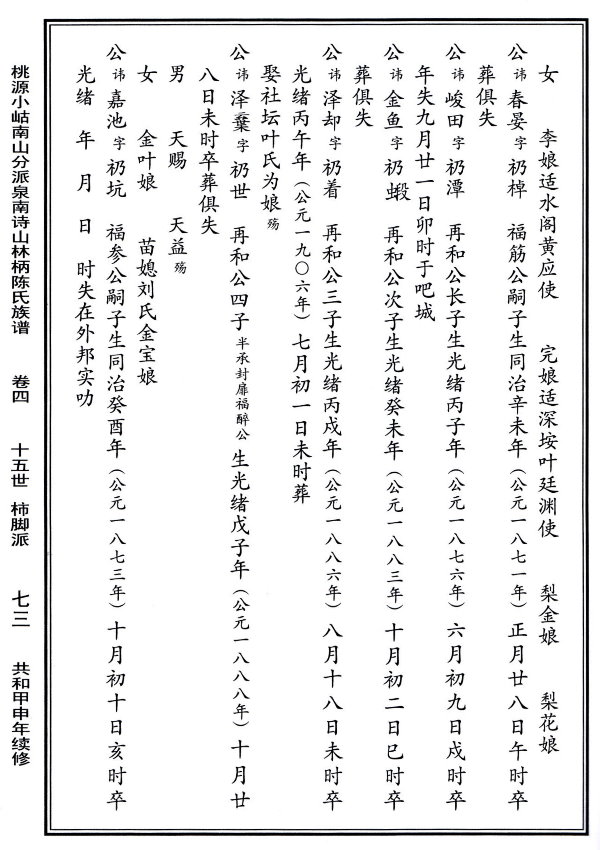 女　李娘适水阁黄应使　完娘适深垵叶廷渊使　梨金娘　梨花娘
公讳春晏字礽棹　福筋公嗣子生同治辛未年（公元一八七一年）正月廿八日午时卒
葬俱失
公讳峻田字礽潭　再和公长子生光绪丙子年（公元一八七六年）六月初九日戌时卒
年失九月廿一日卯时于吧城
公讳金鱼字礽蝦　再和公次子生光绪癸未年（公元一八八三年）十月初二日巳时卒
葬俱失
公讳泽却字礽着　再和公三子生光绪丙戌年（公元一八八六年）八月十八日未时卒
光绪丙午年（公元一九〇六年）七月初一日未时葬
娶社坛叶氏为娘殇
公讳泽蕖字礽世　再和公四子半承封扉福醉公生光绪戊子年（公元一八八八年）十月廿
八日未时卒葬俱失
男　天赐　天益殇
女　金叶娘　苗媳刘氏金宝娘
公讳嘉池字礽坑　福参公嗣子生同治癸酉年（公元一八七三年）十月初十日亥时卒
光绪　年　月　日　时失在外邦实叻
桃源小岵南山分派泉南诗山林柄陈氏族谱　卷四　十五世　柿脚派　七三　共和甲申年续修